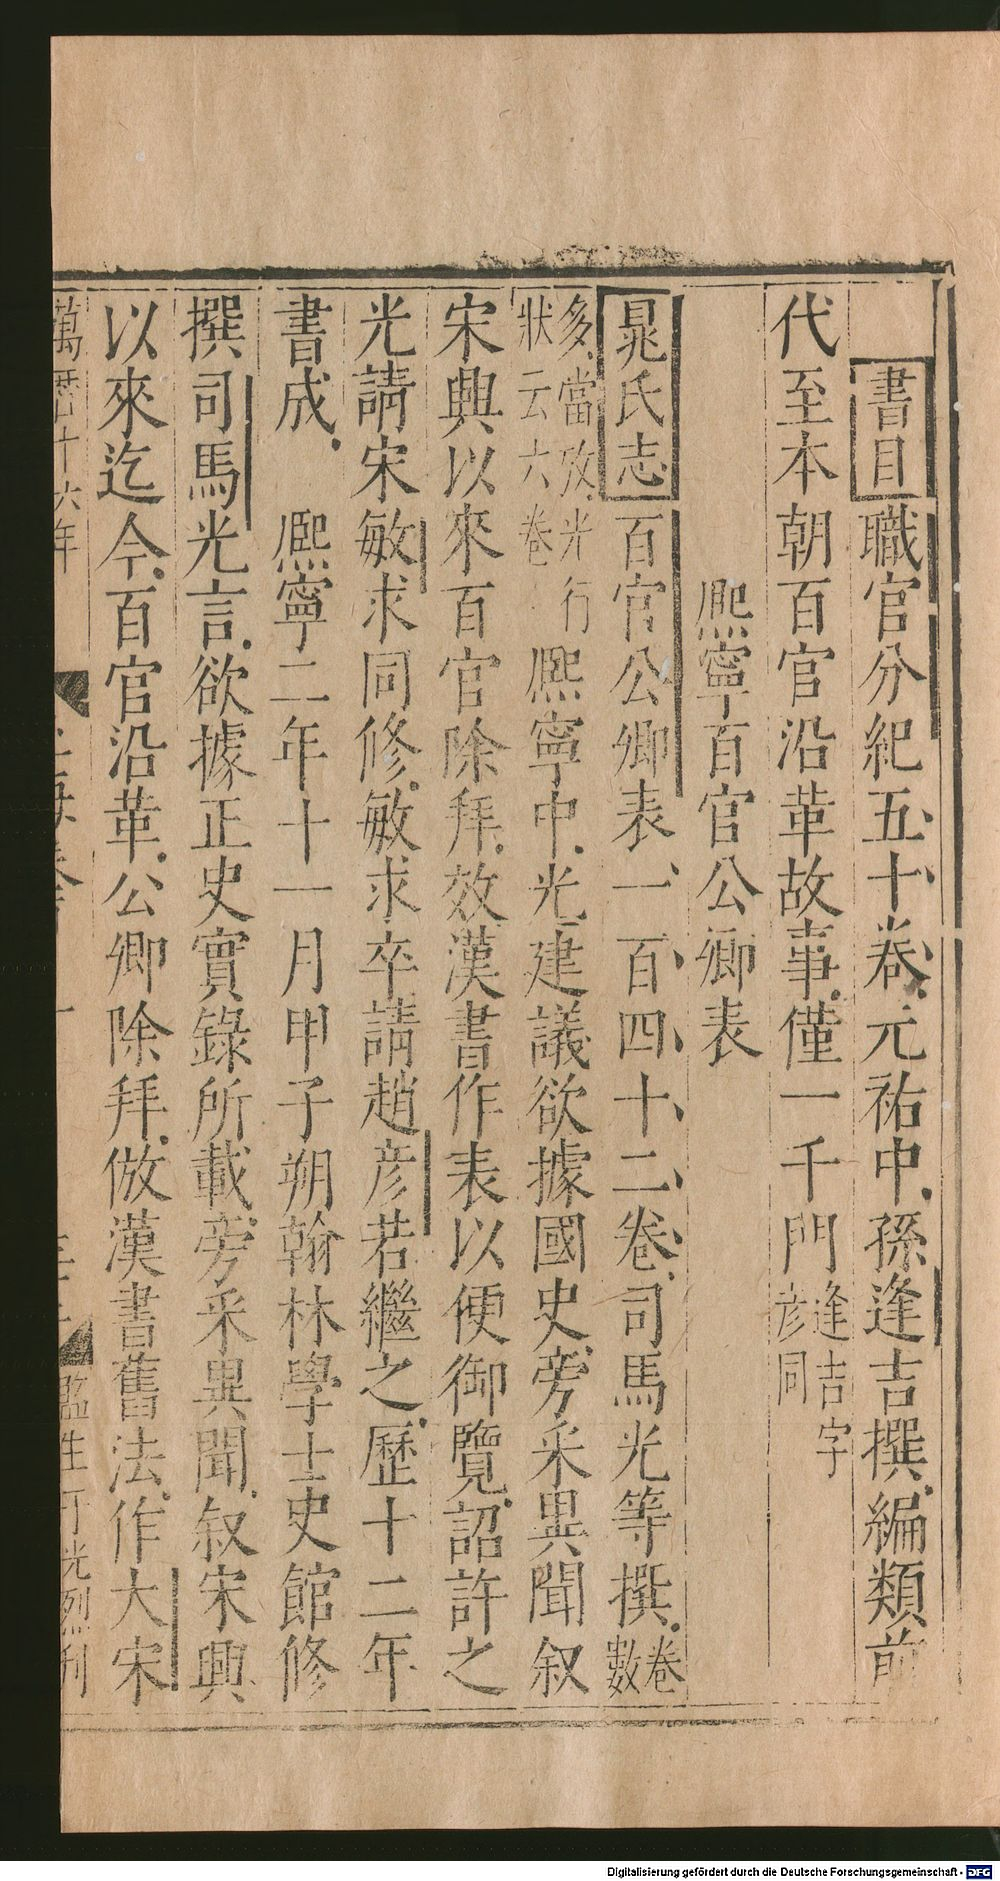 書目職官分紀五十卷元祐中孫逢吉撰編類前
代至本朝百官沿革故事僅一千門逢吉字彥同
熈寧百官公卿表
晁氏志百官公卿表一百四十二卷司馬光等撰卷數
多當攷光行狀云六卷熈寧中光建議欲據國史旁采異聞叙
宋興以來百官除拜效漢書作表以便御覽詔許之
光請宋敏求同修敏求卒請趙彥若繼之歷十二年
書成熈寧二年十一月甲子朔翰林學士史館修
撰司馬光言欲據正史實錄所載旁采異聞叙宋興
以來迄今百官沿革公卿除拜倣漢書舊法作大宋
萬曆十六年
監生 光烈刊
Digitalisierung gefördert durch die Deutsche Forschungsgemeinschaft - DFG